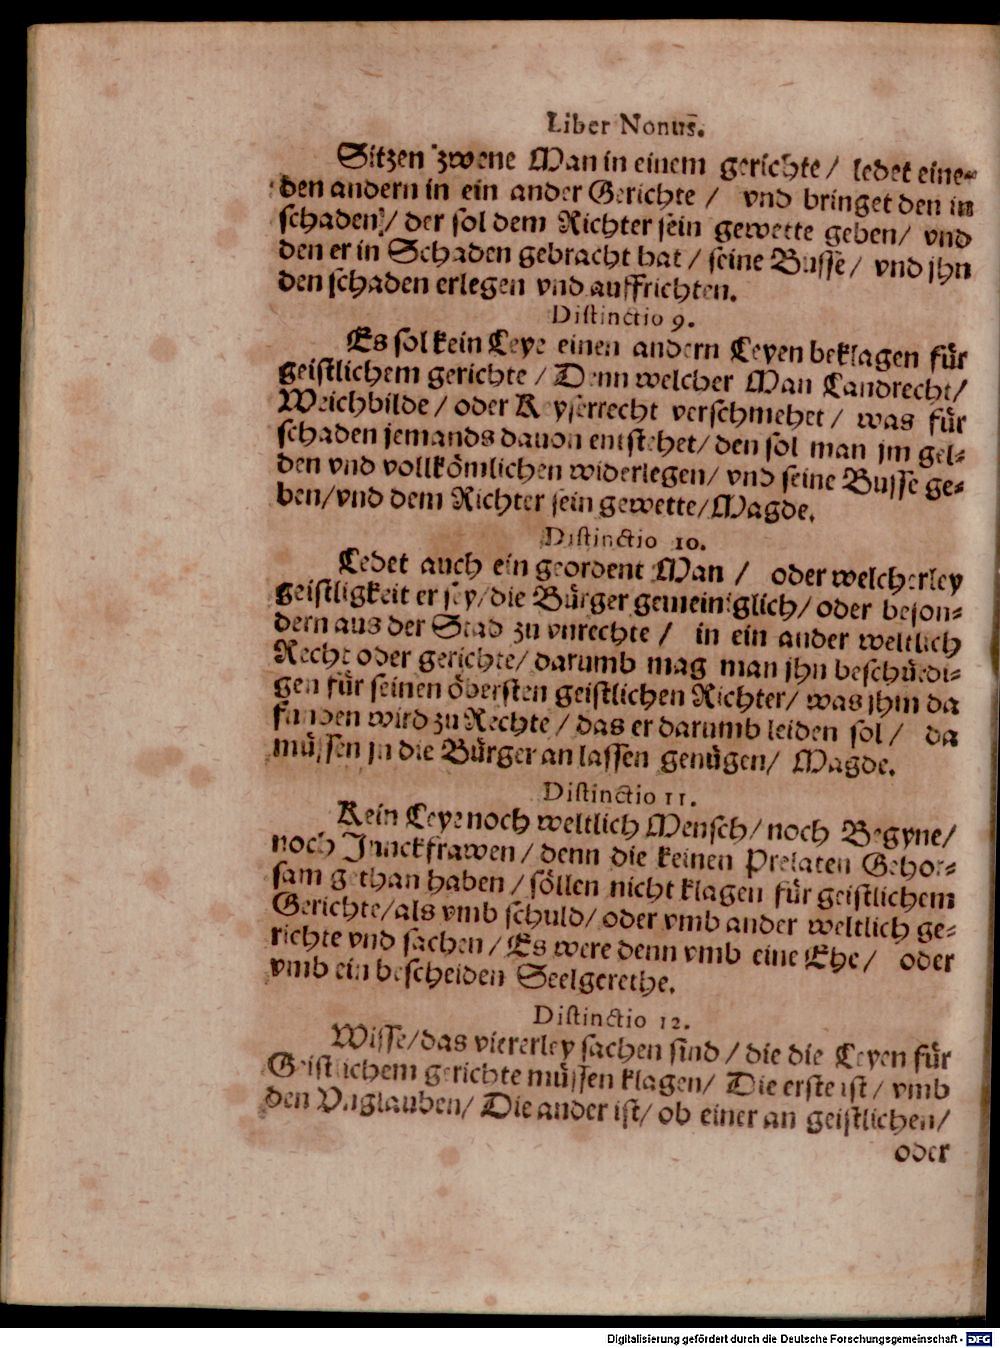 Liber Nonus.
Sitzen zwene Man in einem gerichte / ledet eine
den andern in ein ander Gerichte / vnd bringet den in
schaden / der sol dem Richter sein gewette geben / vnd
den er in Schaden gebracht hat / seine Busse / vnd jhn
den schaden erlegen vnd auffrichten.
Distinctio 9.
Es sol kein Leye einen andern Leyen beklagen für
geistlichem gerichte / Denn welcher Man Landrecht /
Weichbilde / oder Keyserrecht verschmehet / was für
schaden jemands dauon entstehet / den sol man jm gel-
den vnd vollkömlichen widerlegen / vnd seine Busse ge-
ben / vnd dem Richter sein gewette / Magde.
Distinctio 10.
Ledet auch ein geordent Man / oder welcherley
geistligkeit er sey / die Bürger gemeiniglich / oder beson-
dern aus der Stad zu vnrechte / in ein ander weltlich
Recht oder gerichte / darumb mag man jhn beschüldi-
gen für seinen öbersten geistlichen Richter / was jhm da
funden wird zu Rechte / das er darumb leiden sol / da
müssen jn die Bürger an lassen genügen / Magde.
Distinctio 11.
Kein Leye noch weltlich Mensch / noch Begyne /
noch Junckfrawen / denn die keinen Prelaten Gehor-
sam gethan haben / söllen nicht klagen für geistlichem
Gerichte / als vmb schuld / oder vmb ander weltlich ge-
richte vnd sachen / Es were denn vmb eine Ehe / oder
vmb ein bescheiden Seelgerethe.
Distinctio 12.
Wisse / das viererley sachen sind / die die Leyen für
Geistlichem gerichte müssen klagen / Die erste ist / vmb
den Vnglauben / Die ander ist / ob einer an geistlichen /
oder
Digitalisierung gefördert durch die Deutsche Forschungsgemeinschaft - DFG